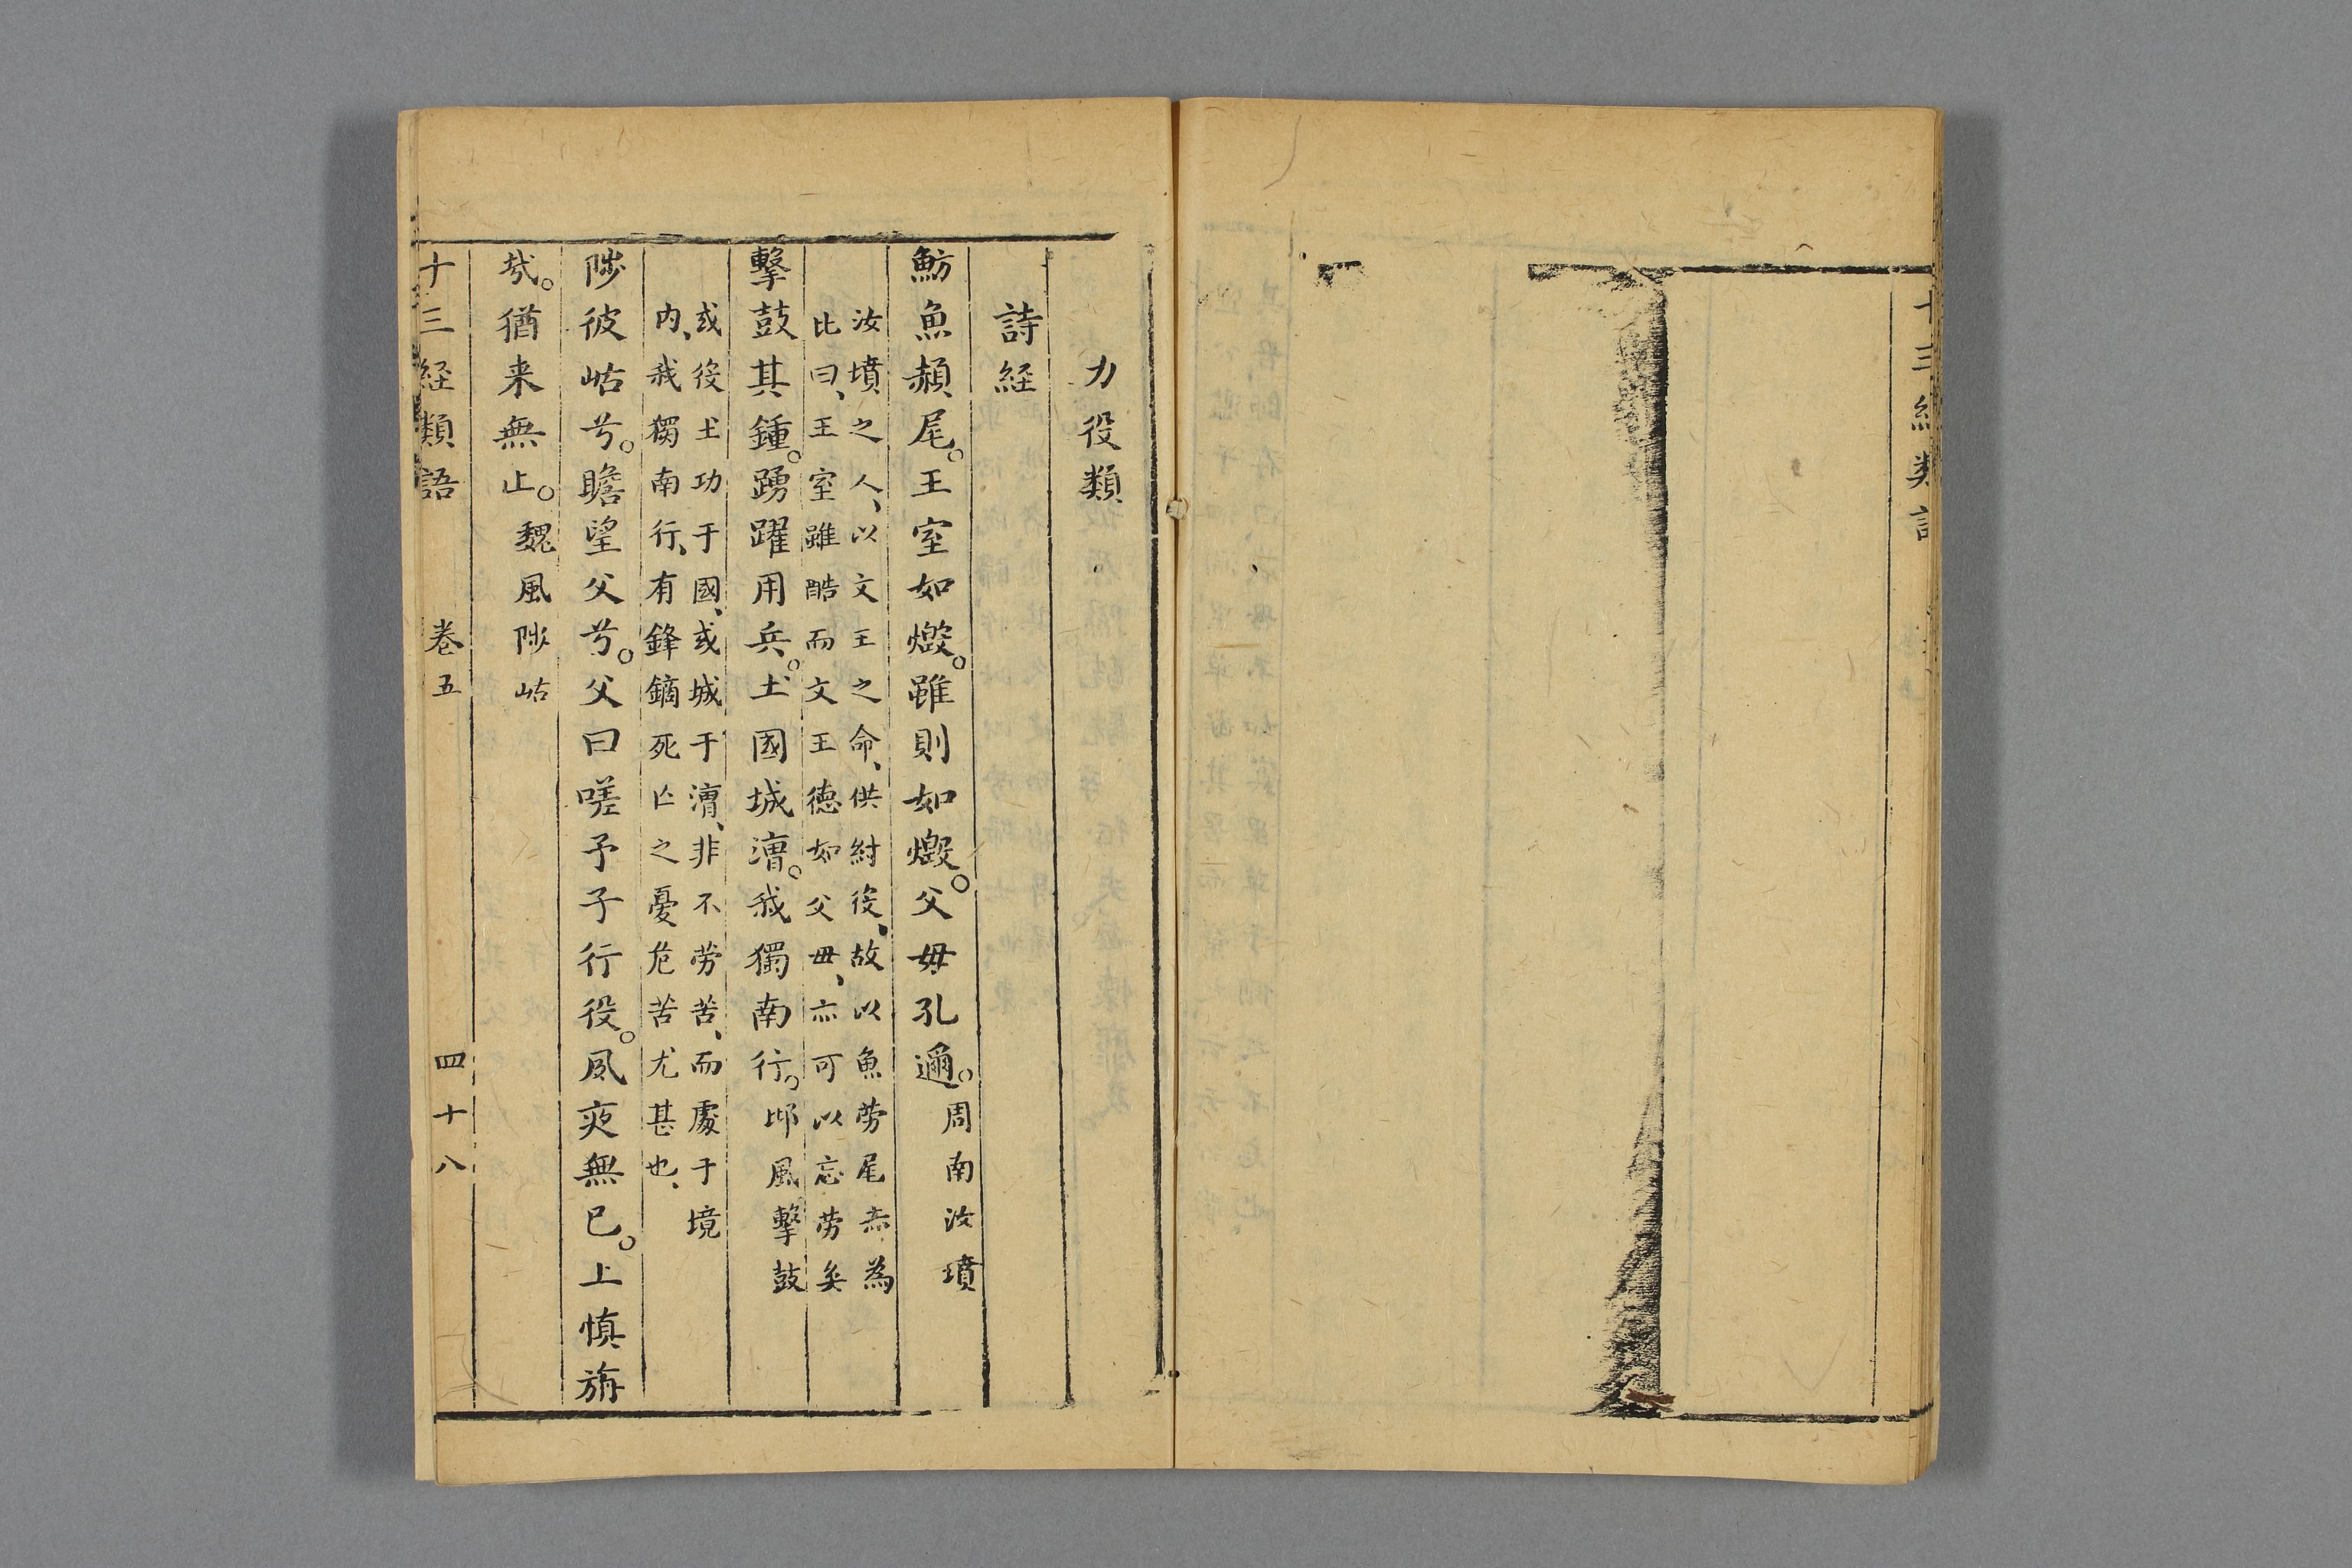 十三經類語
力役類
詩経
魴魚赬尾。王室如燬。雖則如燬。父毋孔邇。周南汝墳
汝墳之人、以文王之命、供紂役、故以魚勞尾赤為
比曰、王室雖酷而文王德如父毋、亦可以忘勞矣
擊鼓其鏜。踴躍用兵。土國城漕。我獨南行。邶風擊鼓
或役土功于國、或城于漕、非不勞苦、而處于境
内、我獨南行、有鋒鏑死亾之憂危苦尤甚也、
陟彼岵兮。瞻望父兮。父曰嗟予子行役。夙夜無已。上慎旃
哉。猶来無止。魏風陟岵
十三経類語 卷五 四十八